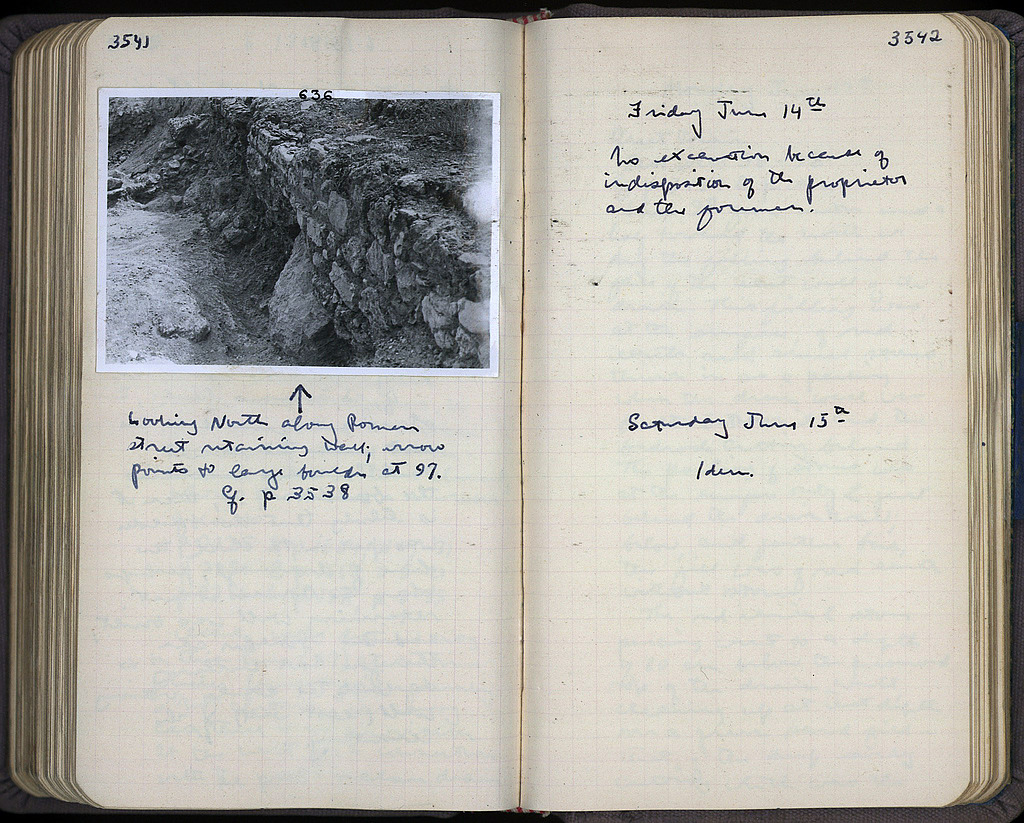 3541
636
Looking North along Roman
street retaining wall; arrow
points to large boulder at 97.
Cf. p 3538
3542
Friday June 14th
No excavation because of
indisposition of the proprietor
and the foreman.
Saturday June 15th
Idem.